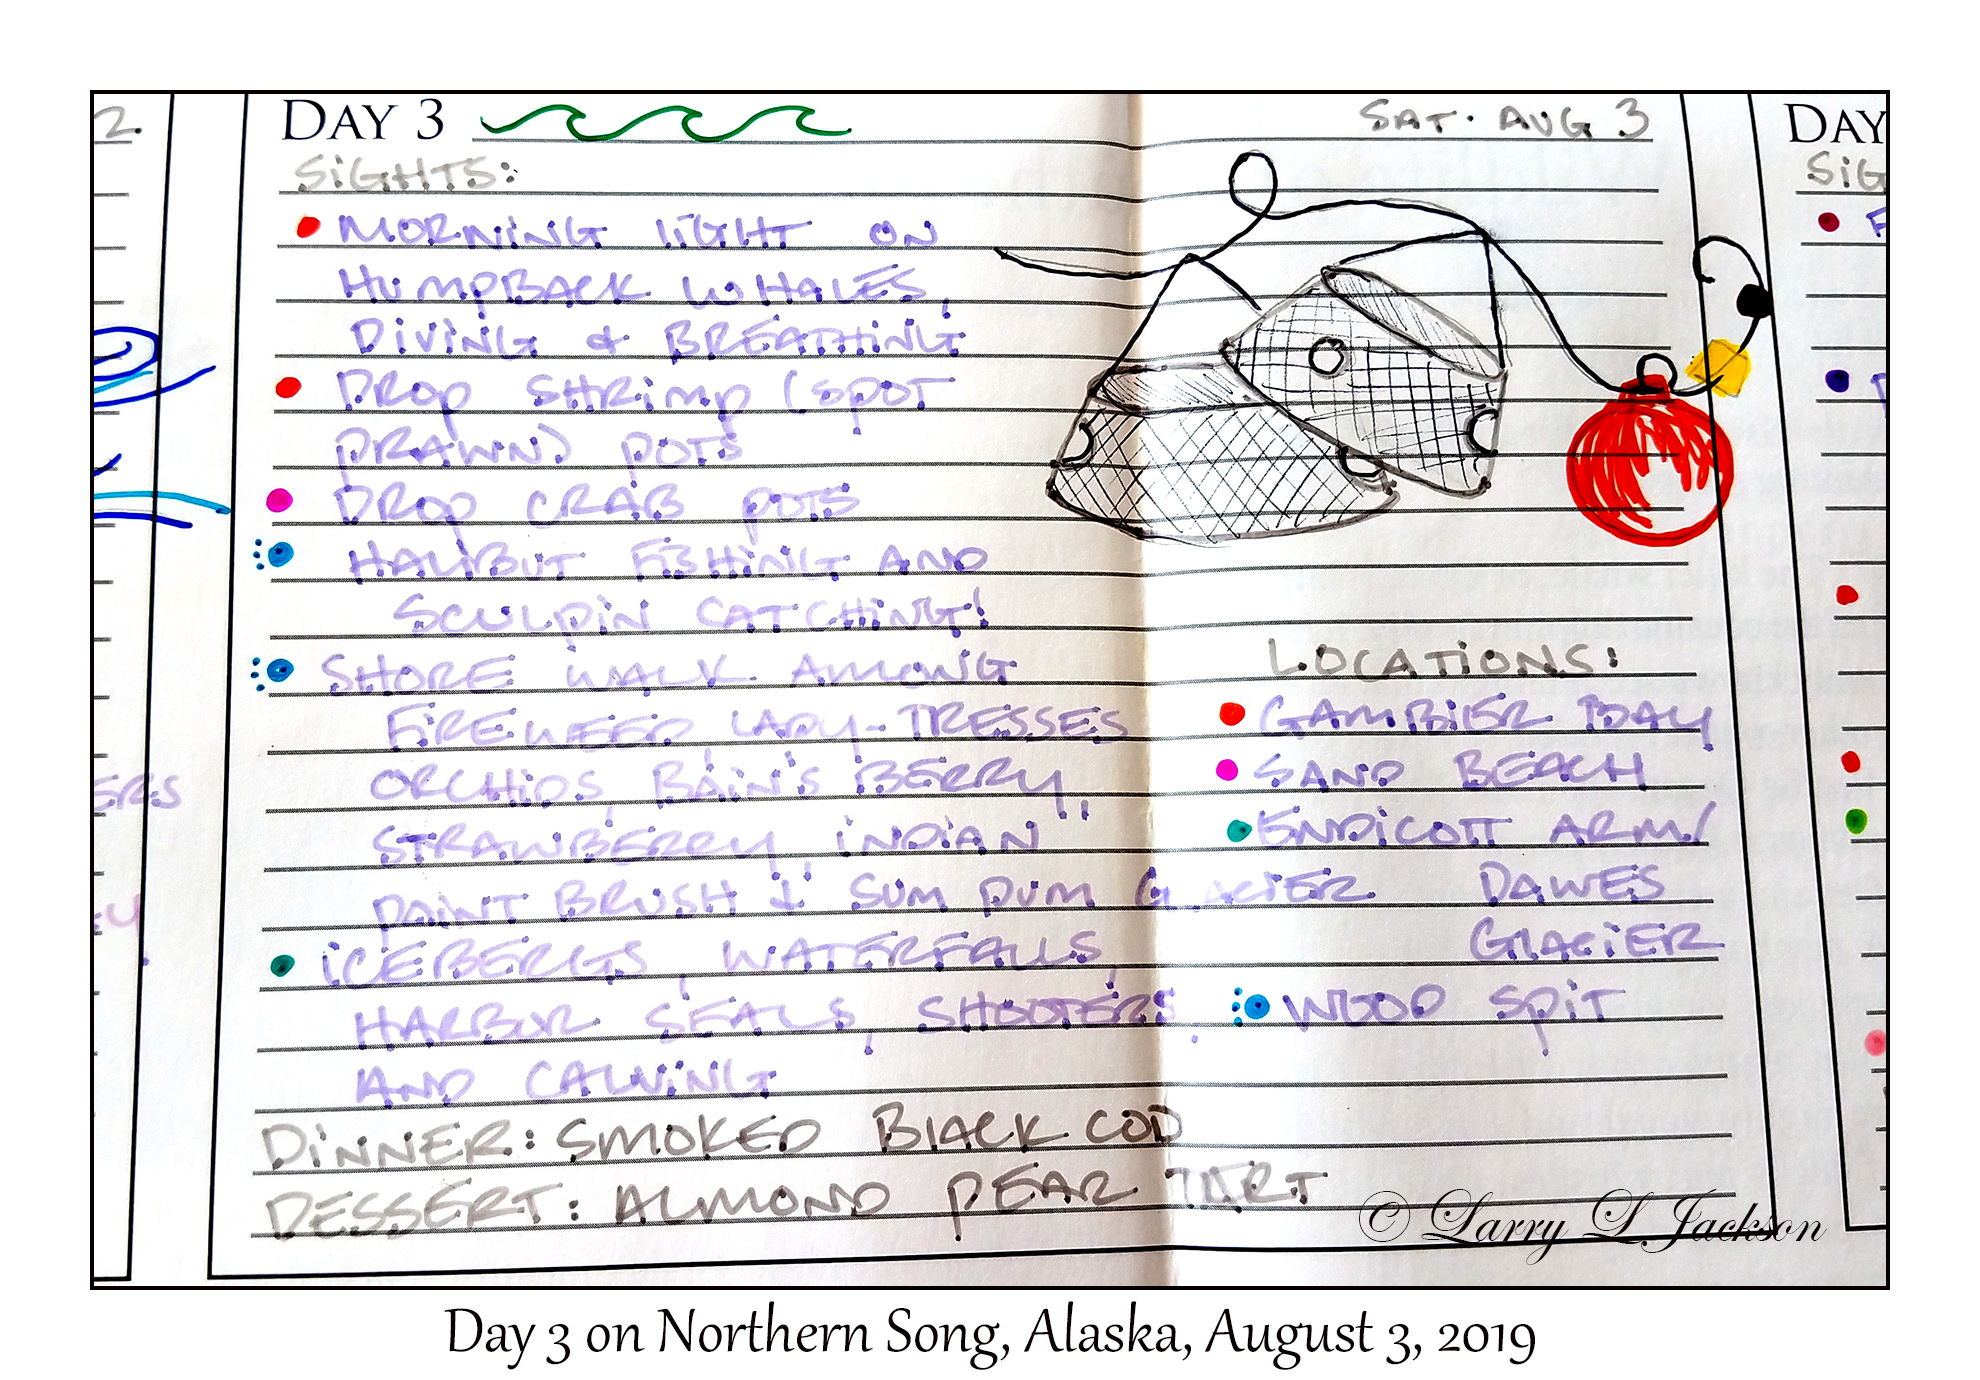 DAY 3
SAT. AUG 3
SIGHTS:
MORNING LIGHT ON
HUMPBACK WHALES,
DIVING & BREATHING
DROP SHRIMP (SPOT
PRAWN) POTS
DROP CRAB POTS
HALIBUT FISHING AND
SCULPIN CATCHING!
SHORE WALK AMONG
FIREWEED, LADY-TRESSES
ORCHIDS, BAIN'S BERRY,
STRAWBERRY, INDIAN
PAINT BRUSH & SUM DUM GLACIER
ICEBERGS, WATERFALLS,
HARBOR SEALS, SHOOTERS,
AND CALVING
DINNER: SMOKED BLACK COD
DESSERT: ALMOND PEAR TART
LOCATIONS:
GAMBIER BAY
SAND BEACH
ENDICOTT ARM/
DAWES
GLACIER
WOOD SPIT
2.
ERS
DAY
SIG
© Larry L Jackson
Day 3 on Northern Song, Alaska, August 3, 2019